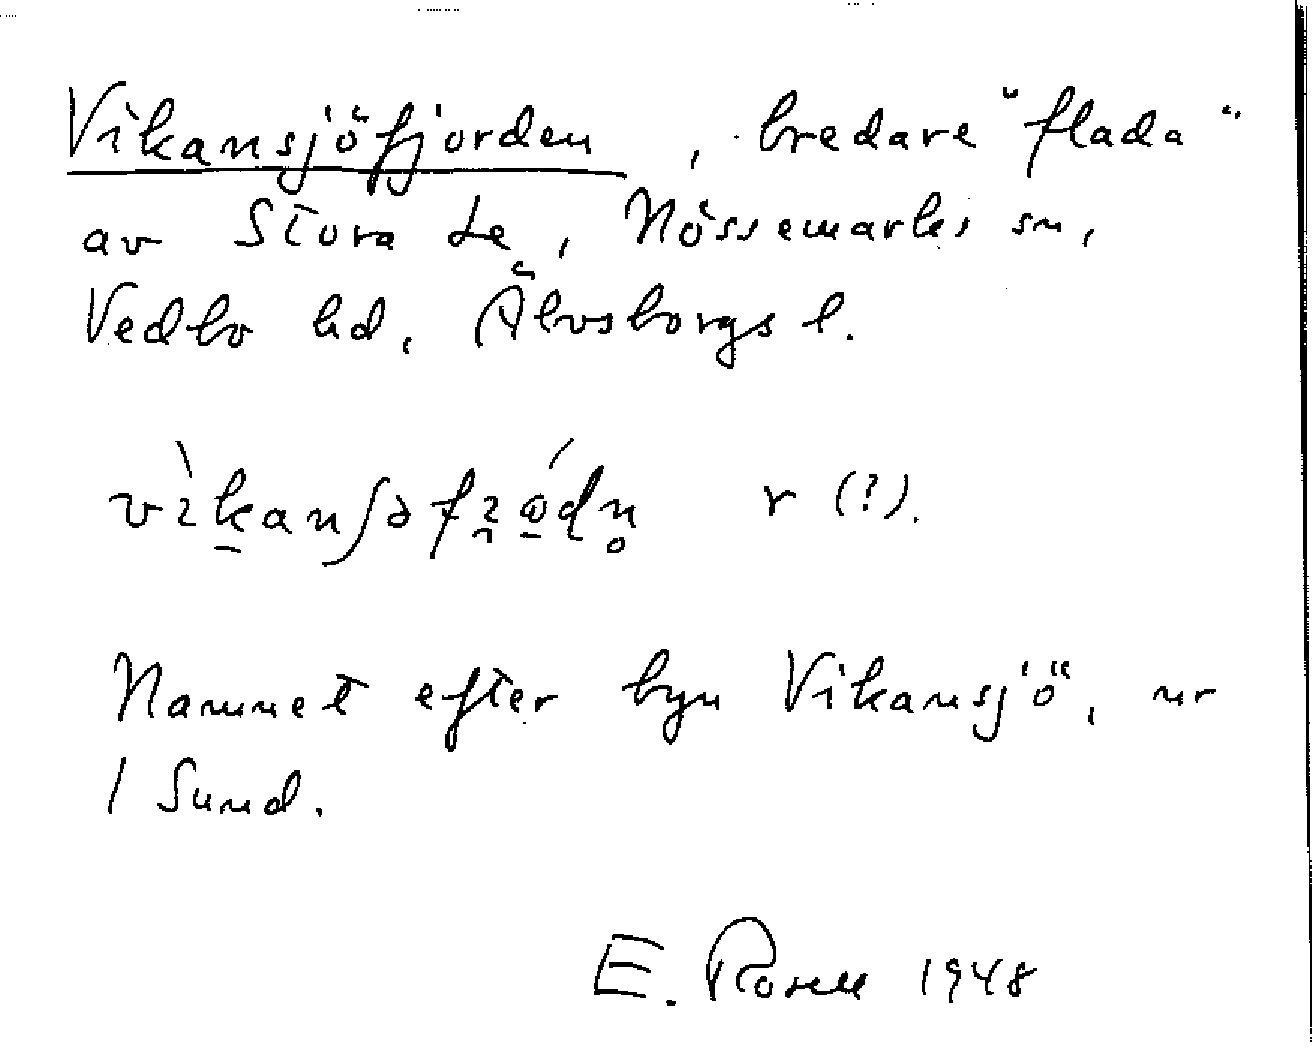 Vikansjöfjorden, bredare "flada"
av Stora Le, Nössemarks sn,
Vedbo hd, Älvsborgs l.
r (?).
Namnet efter byn Vikansjö, nr
1 Sund.
E. Rosell 1948